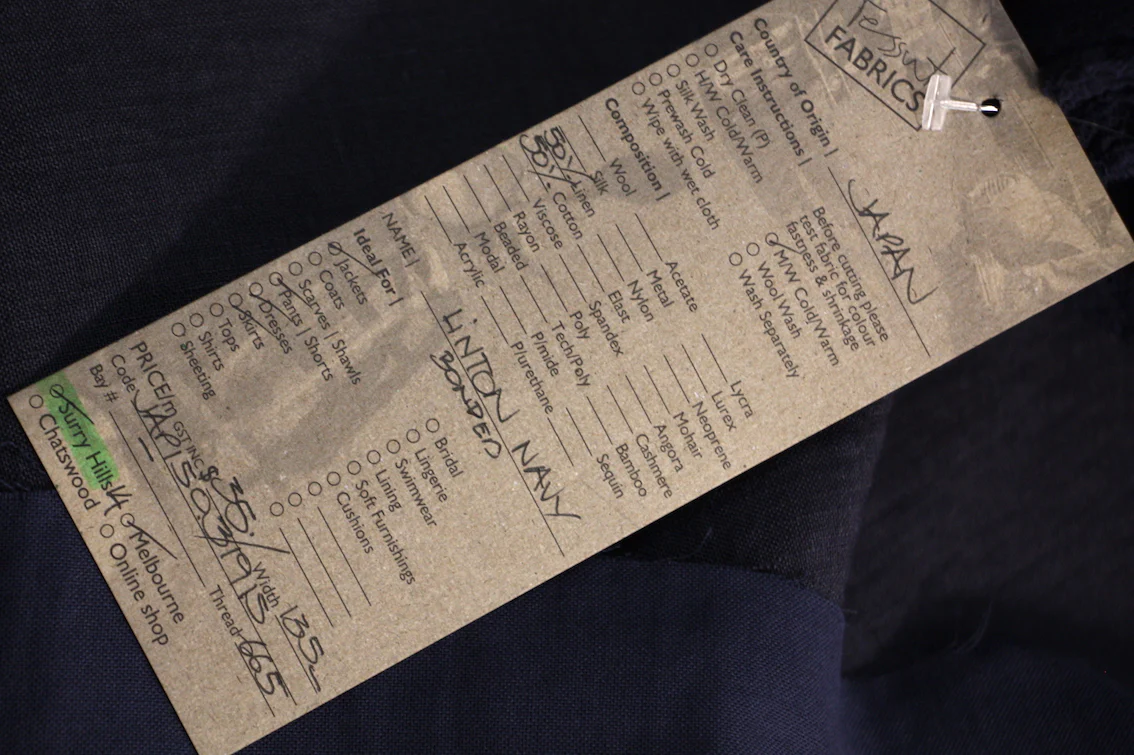 Tessuti
FABRICS
Country of Origin | JAPAN
Care Instructions |
Before cutting please
test fabric for colour
fastness & shrinkage
Dry Clean (P)
H/W Cold/Warm
Silk Wash
Prewash Cold
Wipe with wet cloth
M/W Cold/Warm
Wool Wash
Wash Separately
Composition |
Wool
Silk
50% Linen
50% Cotton
Viscose
Rayon
Beaded
Modal
Acrylic
Acetate
Metal
Nylon
Elast
Spandex
Poly
Tech/Poly
P/mide
P/urethane
Lycra
Lurex
Neoprene
Mohair
Angora
Cashmere
Bamboo
Sequin
NAME | LINTON NAVY
BONDED
Ideal For |
Jackets
Coats
Scarves | Shawls
Pants | Shorts
Dresses
Skirts
Tops
Shirts
Sheeting
Bridal
Lingerie
Swimwear
Lining
Soft Furnishings
Cushions
PRICE/m GST INC $35.- Width 135
Code Thread 665
Bay #
Surry Hills 14 Melbourne
Chatswood Online shop